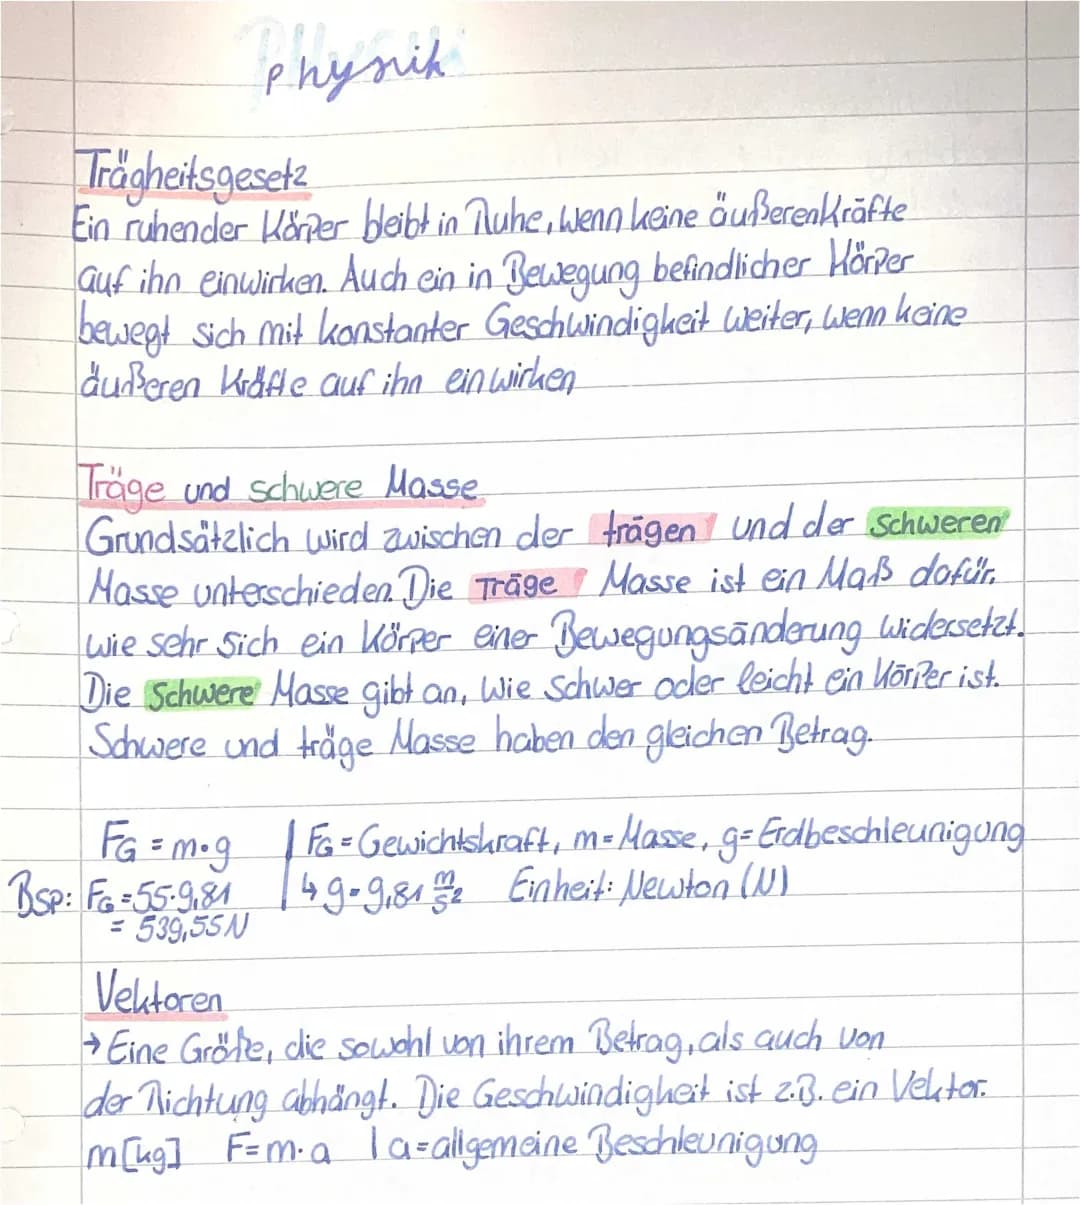 Physik
Trägheitsgesetz
Ein ruhender Körper bleibt in Ruhe, wenn keine äußeren Kräfte
auf ihn einwirken. Auch ein in Bewegung befindlicher Körper
bewegt sich mit konstanter Geschwindigkeit weiter, wenn keine
äußeren Kräfte auf ihn einwirken
Träge und schwere Masse
Grundsätzlich wird zwischen der trägen und der Schweren
Masse unterschieden. Die Träge Masse ist ein Maß dafür,
wie sehr sich ein Körper einer Bewegungsänderung widersetzt.
Die Schwere Masse gibt an, wie schwer oder leicht ein Körper ist.
Schwere und träge Masse haben den gleichen Betrag.
FG = m·g | FG = Gewichtskraft, m = Masse, g = Erdbeschleunigung
Bsp: FG = 55·9,81 | ↳ g = 9,81 m/s² Einheit: Newton (N)
= 539,55N
Vektoren
→ Eine Größe, die sowohl von ihrem Betrag, als auch von
der Richtung abhängt. Die Geschwindigkeit ist z.B. ein Vektor.
m[kg] F=m·a | a=allgemeine Beschleunigung